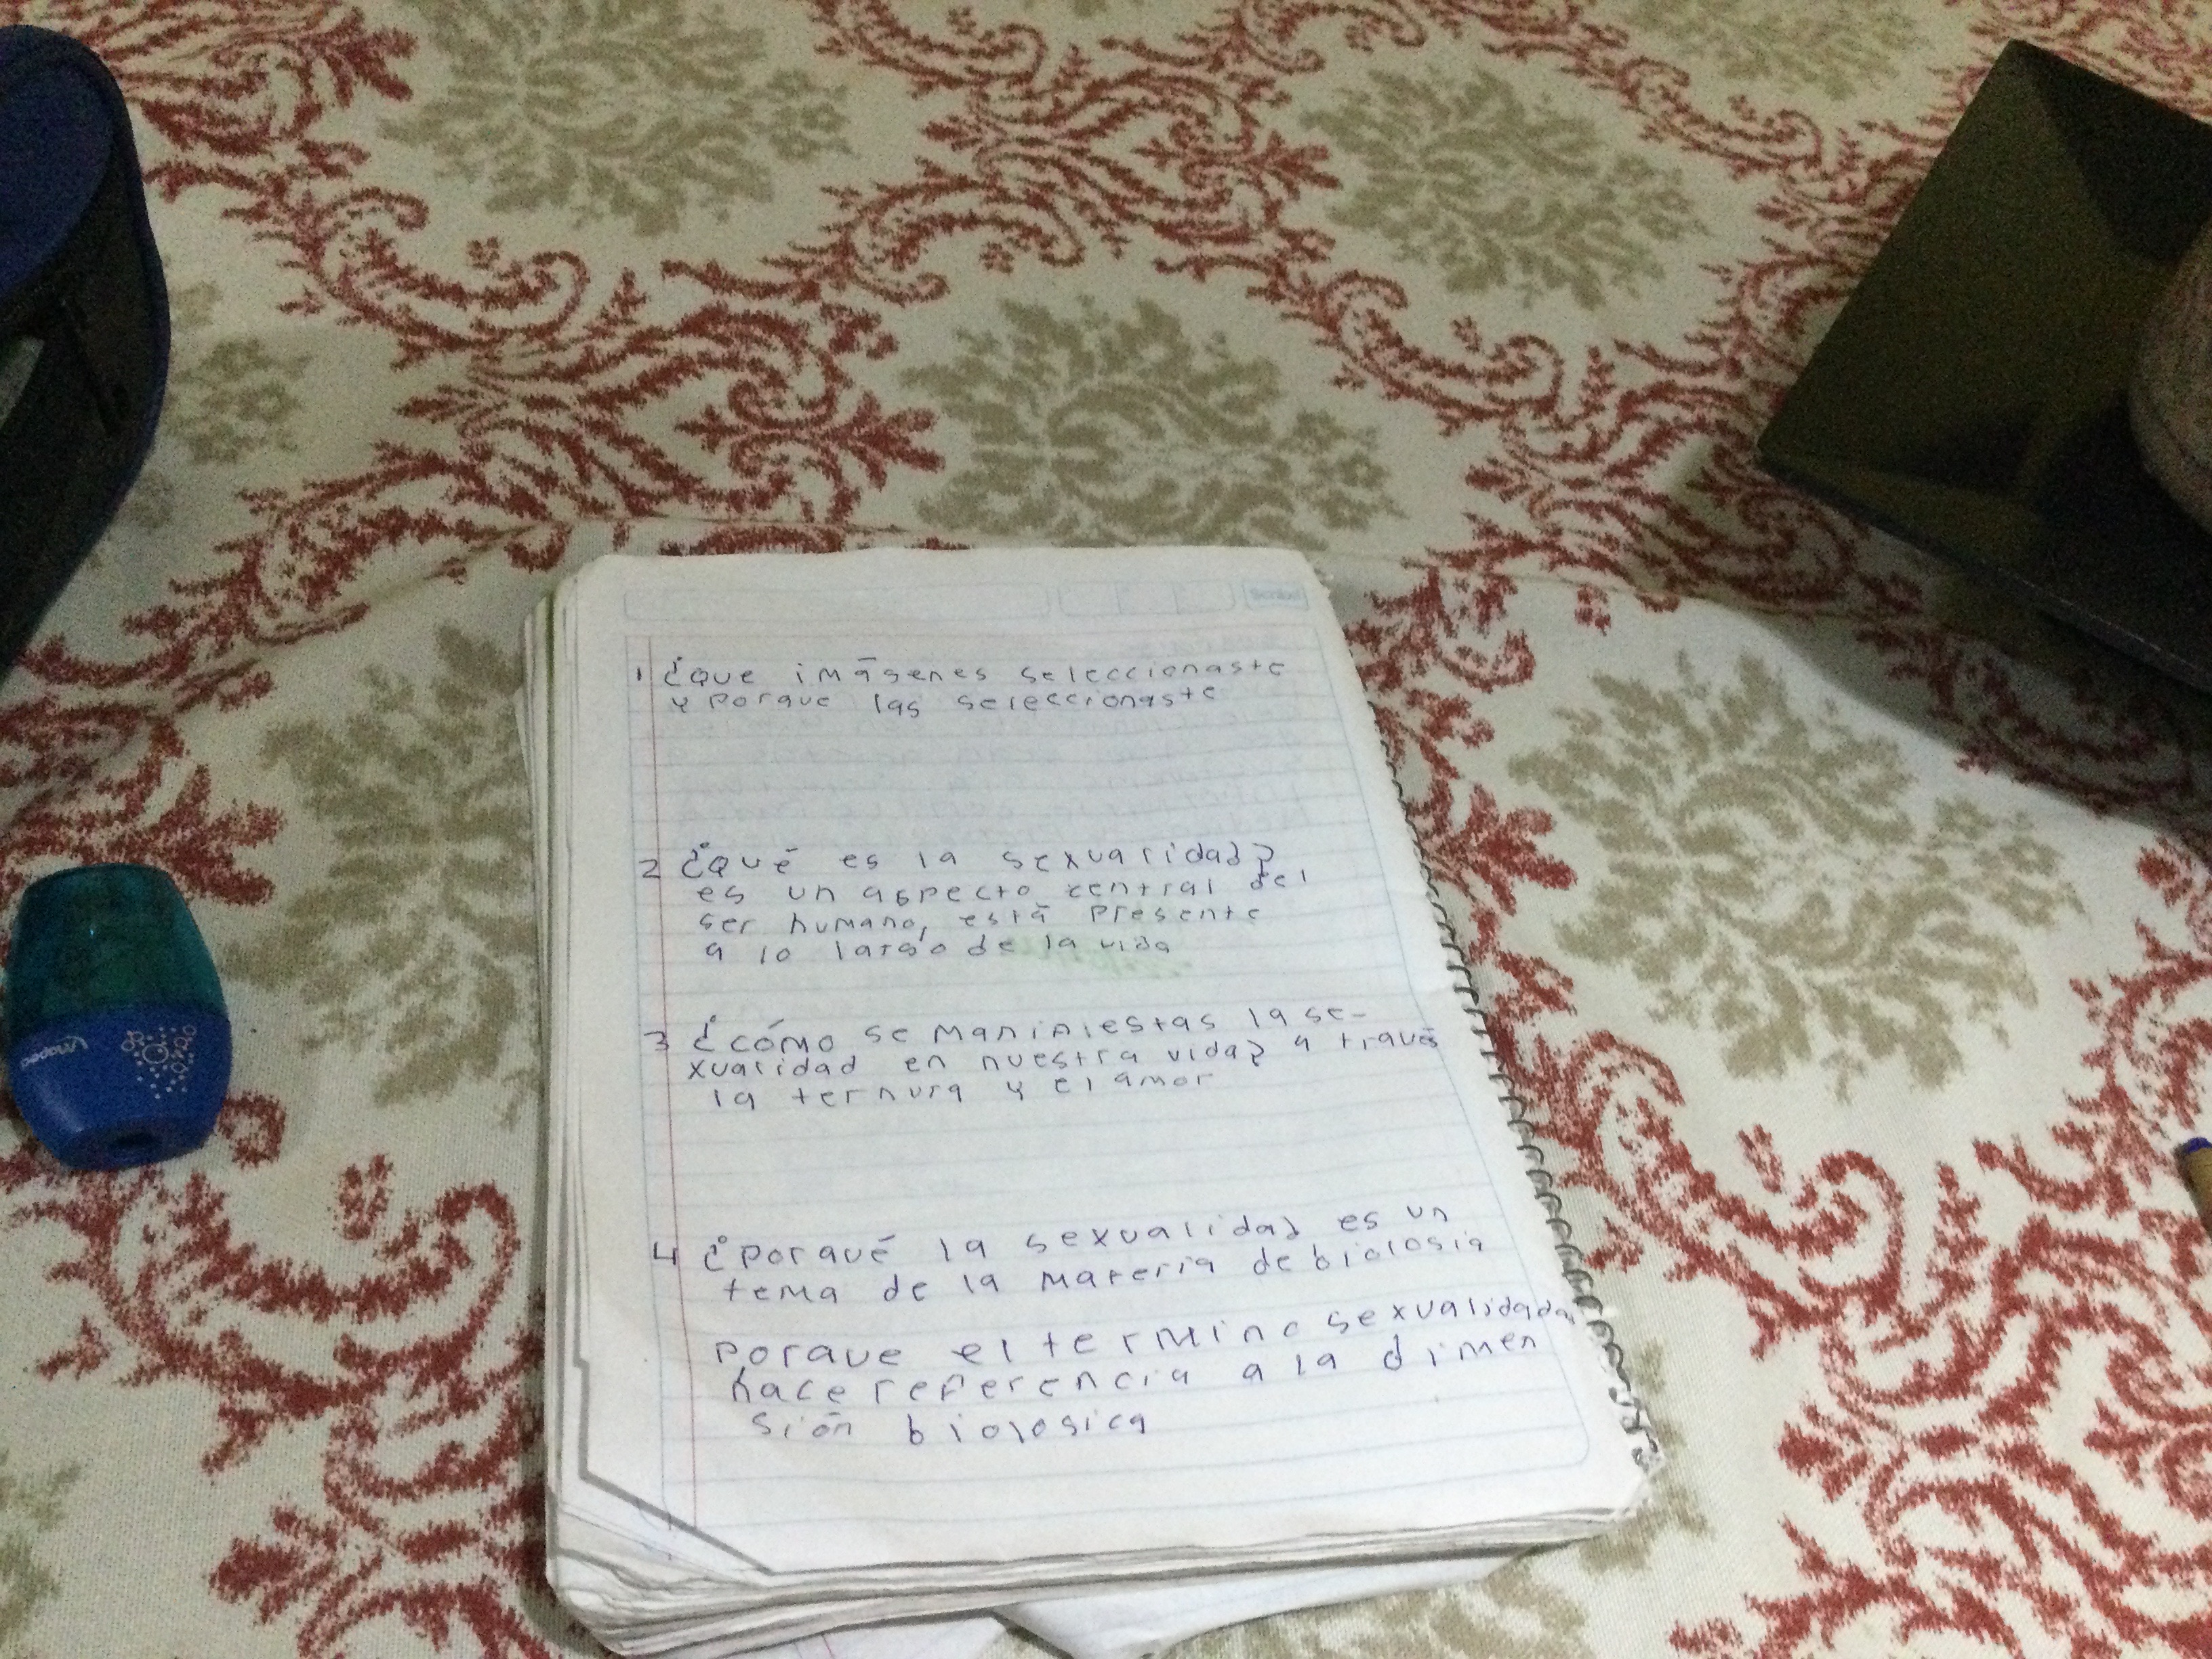 Scribe
1 ¿que imágenes seleccionaste
y porque las seleccionaste
2 ¿qué es la sexualidad?
es un aspecto central del
ser humano, está presente
a lo largo de la vida
3 ¿cómo se maninies tas la se-
xualidad en nuestra vida? a través
la ternura y el amor
4 ¿porqué la sexualidad es un
tema de la materia de biologia
porque el termino sexualidada
hace referencia a la dimen
sión biologica
Mapeo